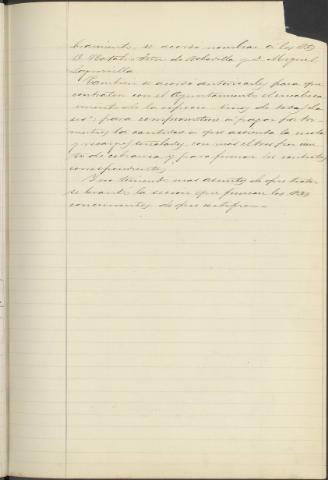 bramiento se acordo nombrar a los Sres
D. Natal y D. Miguel
Tambien se acordo autorizarles para que
contraten con el Ayuntamiento el encabeza
miento de la especie de toda cla
se; para comprometerse a pagar por tri
mestres la cantidad a que ascienda la cuota
y recargos señalados, con mas el tres por cien
to de cobranza y para firmar los contratos
correspondientes
Y no teniendo mas asuntos de que tratar
se levantó la sesion que firman los Sres
concurrentes de que certifico